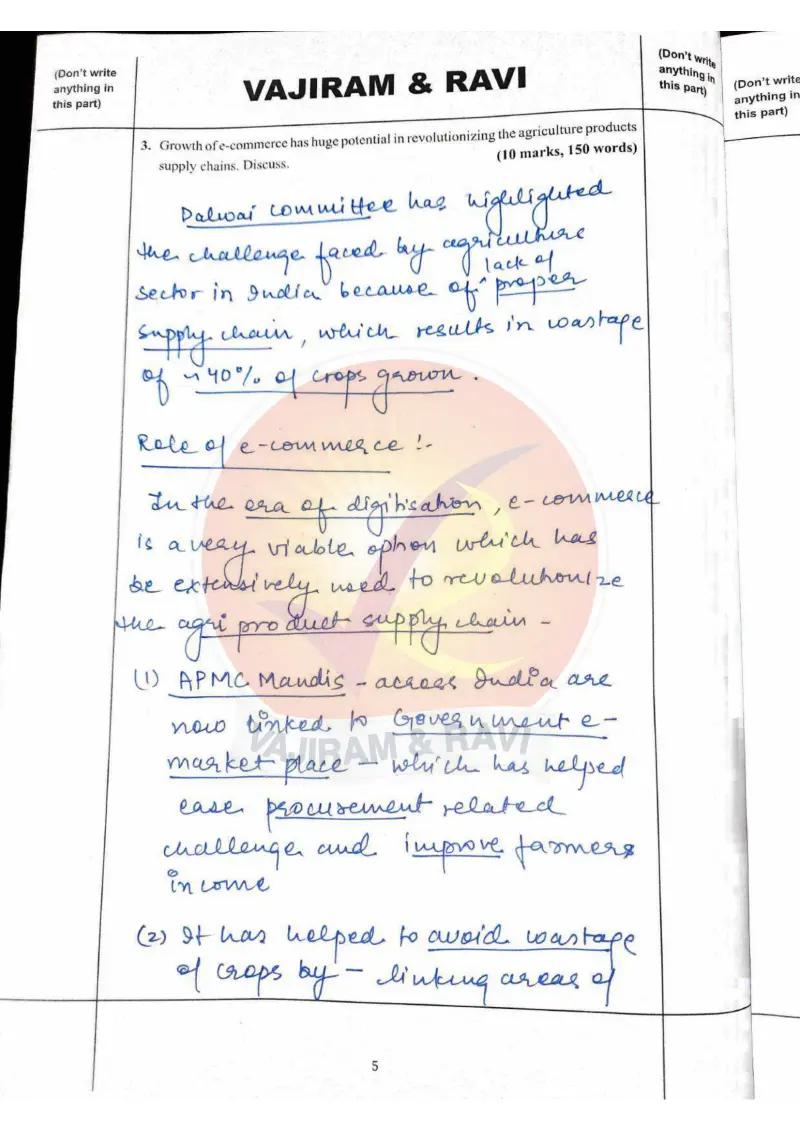 (Don't write
anything in
this part)
VAJIRAM & RAVI
(Don't write
anything in
this part)
(Don't write
anything in
this part)
3. Growth of e-commerce has huge potential in revolutionizing the agriculture products
supply chains. Discuss.
(10 marks, 150 words)
Dalwai committee has highlighted
the challenge faced by agriculture
sector in India because of ^ lack of proper
supply chain, which results in wastage
of ~40% of crops grown.
Role of e-commerce :-
In the era of digitisation, e-commerce
is a very viable option which has
be extensively used to revolutionize
the agri product supply chain -
(1) APMC Mandis - across India are
now linked to Government e-
market place - which has helped
ease procurement related
challenge and improve farmers
income
(2) It has helped to avoid wastage
of crops by - linking areas of
VAJIRAM & RAVI
5